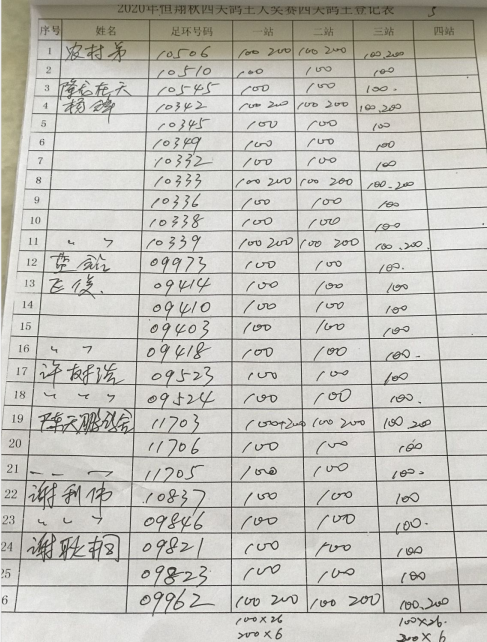 2020年恒翔秋四关鸽王大奖赛四关鸽王登记表 5
序号 姓名 足环号码 一站 二站 三站 四站
1 农村弟 10506 100 200 100 200 100.200
2 10510 100 100 100
3 10545 100 100 100.
4 杨锦 10342 100 200 100 200 100.200
5 10345 100 100 100
6 10349 100 100 100
7 10332 100 100 100
8 10333 100 200 100 200 100.200
9 10336 100 100 100
10 10338 100 100 100
11 〃 〃 10339 100 200 100 200 100.200
12 09973 100 100 100.
13 飞俊 09414 100 100 100
14 09410 100 100 100
15 09403 100 100 100
16 〃 〃 09418 100 100 100.
17 09523 100 100 100
18 〃 〃 〃 09524 100 100 100.
19 陈天鹏 11703 100+200 100 200 100 200
20 11706 100 100 100
21 11705 100 100 100.
22 谢利伟 10837 100 100 100
23 〃 〃 09846 100 100 100.
24 谢耿 09821 100 100 100
25 09823 100 100 100
6 09962 100 200 100 200 100.200
100×26 100×26.
200×6 200×6